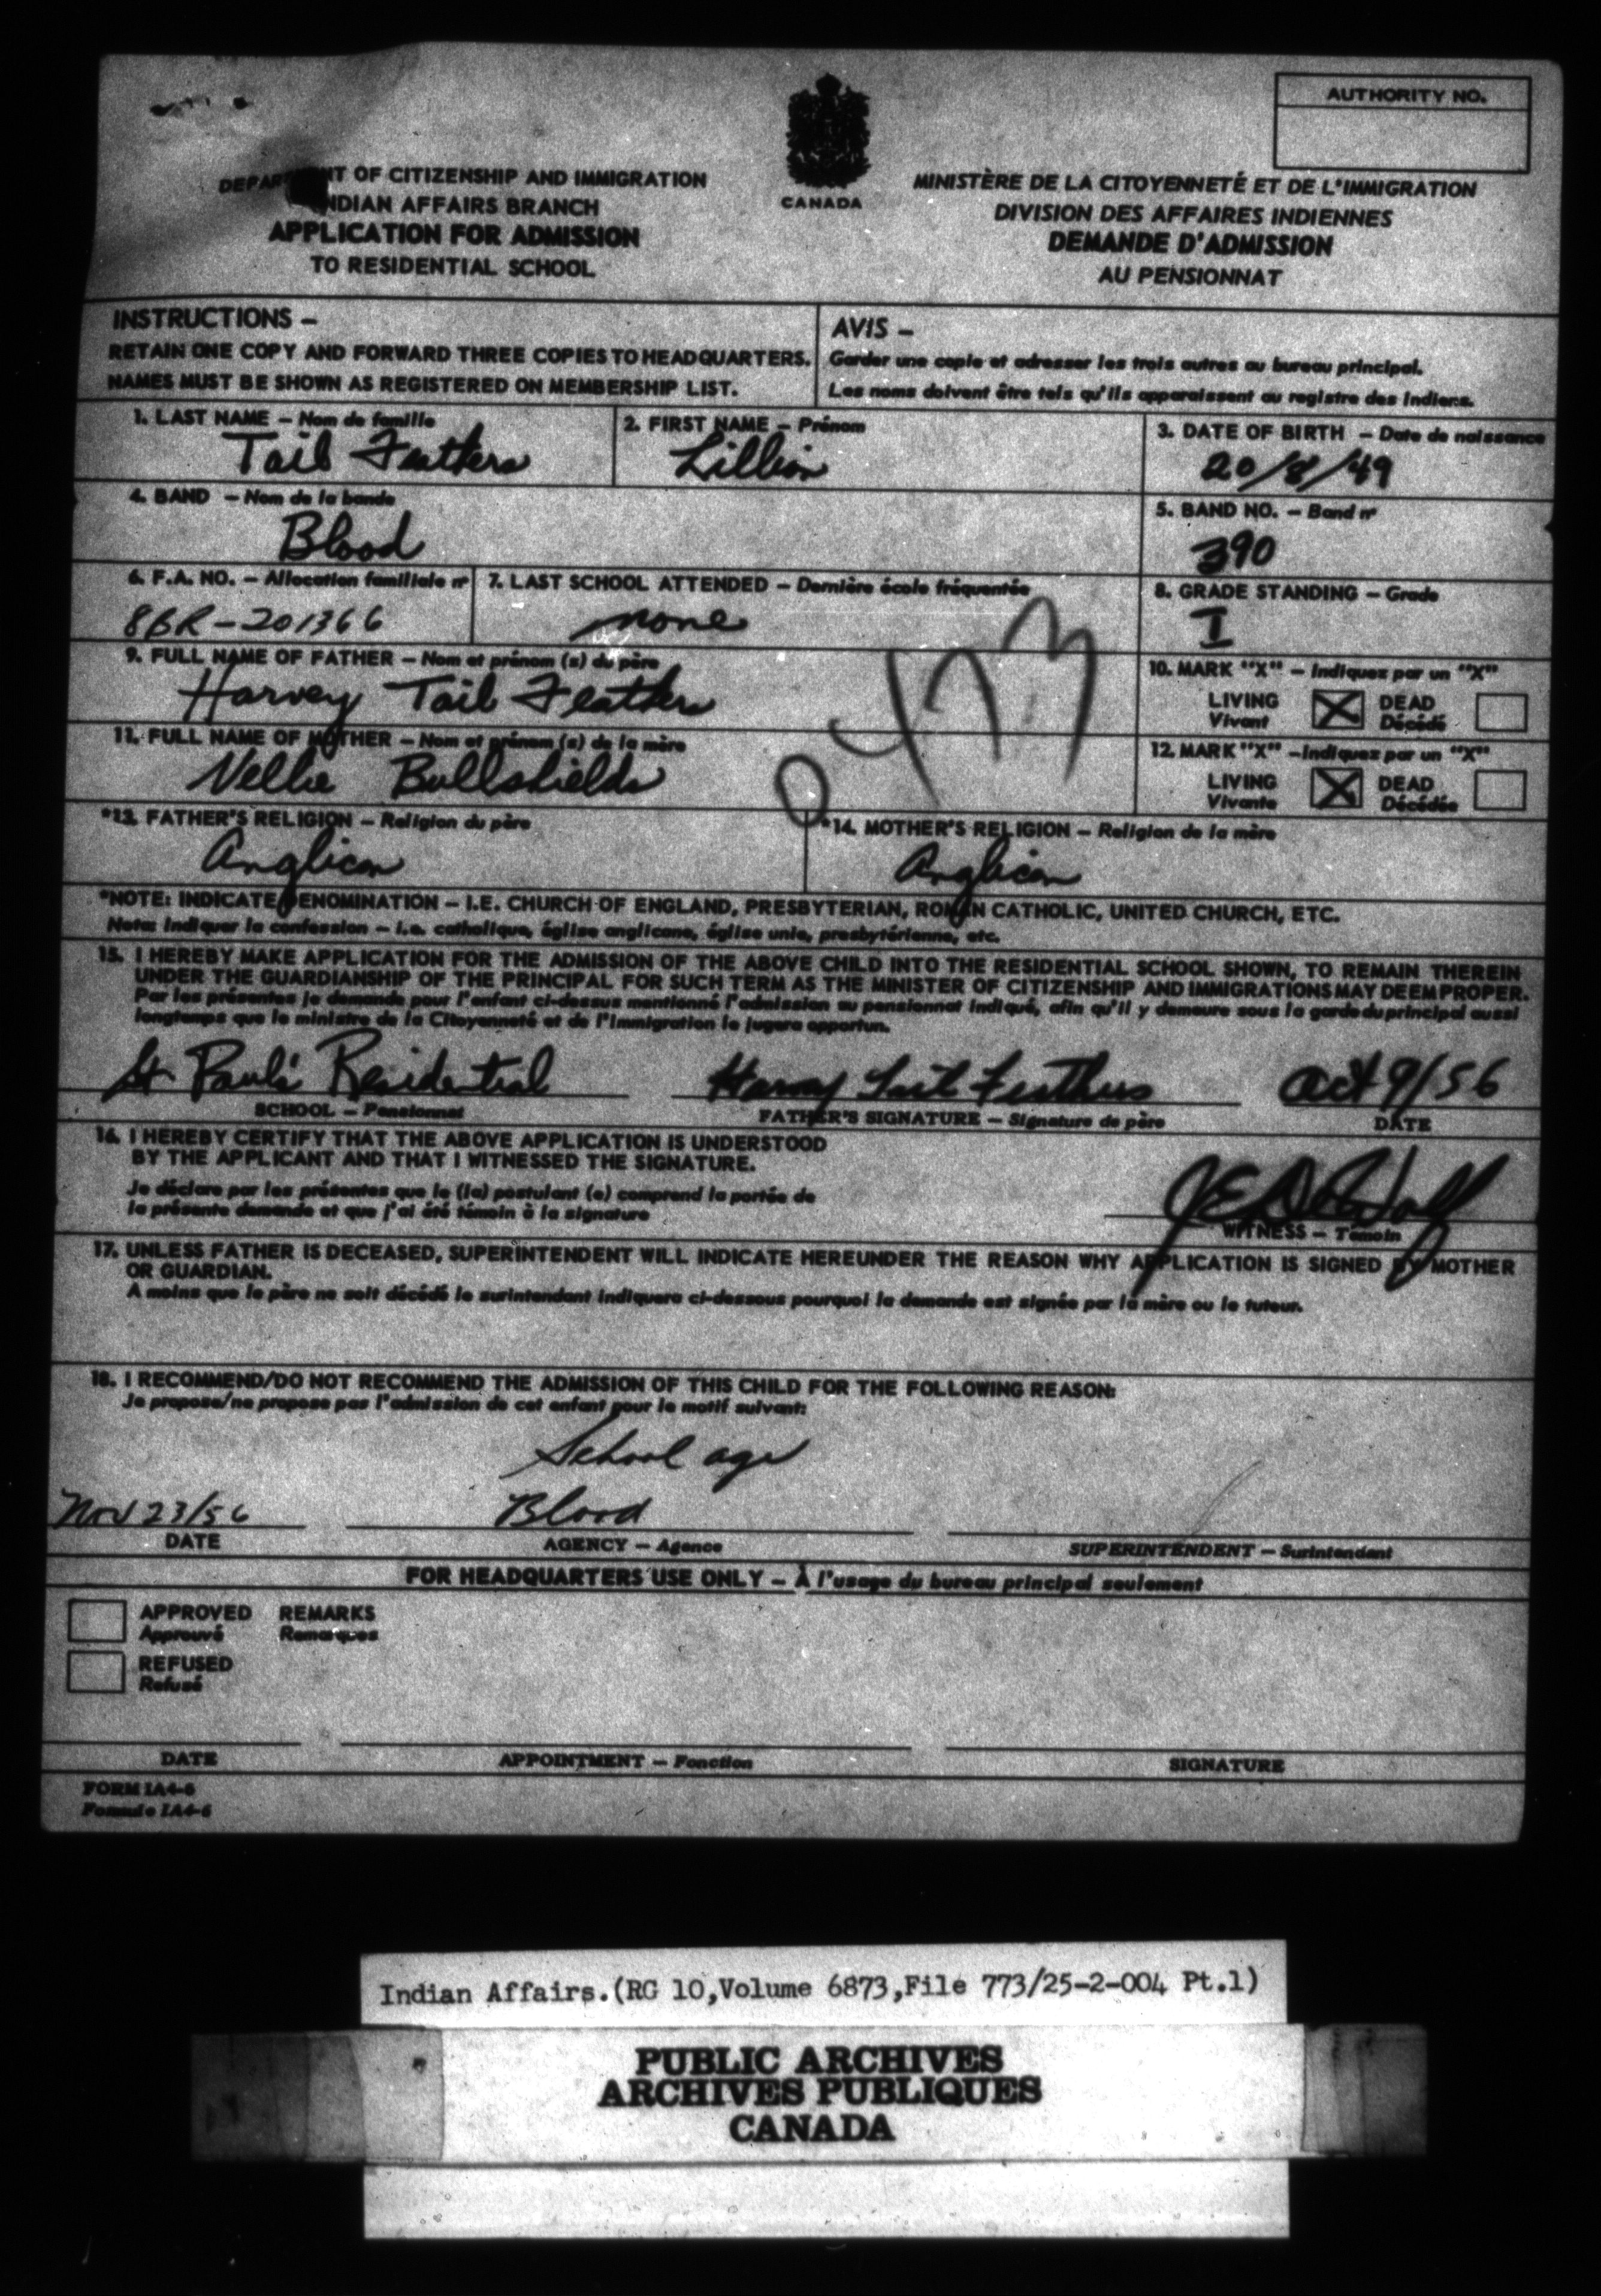 AUTHORITY NO.
DEPARTMENT OF CITIZENSHIP AND IMMIGRATION
INDIAN AFFAIRS BRANCH
APPLICATION FOR ADMISSION
TO RESIDENTIAL SCHOOL
CANADA
MINISTÈRE DE LA CITOYENNETÉ ET DE L'IMMIGRATION
DIVISION DES AFFAIRES INDIENNES
DEMANDE D'ADMISSION
AU PENSIONNAT
INSTRUCTIONS –
RETAIN ONE COPY AND FORWARD THREE COPIES TO HEADQUARTERS.
NAMES MUST BE SHOWN AS REGISTERED ON MEMBERSHIP LIST.
AVIS –
Garder une copie et adresser les trois autres au bureau principal.
Les noms doivent être tels qu'ils apparaissent au registre des Indiens.
1. LAST NAME – Nom de famille
Tail Feathers
2. FIRST NAME – Prénom
Lillian
3. DATE OF BIRTH – Date de naissance
20/8/49
4. BAND – Nom de la bande
Blood
5. BAND NO. – Band nº
390
6. F.A. NO. – Allocation familiale nº
8BR-201366
7. LAST SCHOOL ATTENDED – Dernière école fréquentée
none
8. GRADE STANDING – Grade
I
9. FULL NAME OF FATHER – Nom et prénom (s) du père
Harvey Tail Feathers
10. MARK "X" – Indiquez par un "X"
LIVING X DEAD
Vivant Décédé
11. FULL NAME OF MOTHER – Nom et prénom (s) de la mère
Nellie Bullshields
12. MARK "X" – Indiquez par un "X"
LIVING X DEAD
Vivante Décédée
*13. FATHER'S RELIGION – Religion du père
Anglican
*14. MOTHER'S RELIGION – Religion de la mère
Anglican
*NOTE: INDICATE DENOMINATION – I.E. CHURCH OF ENGLAND, PRESBYTERIAN, ROMAN CATHOLIC, UNITED CHURCH, ETC.
Nota: Indiquer la confession – i.e. catholique, église anglicane, église unie, presbytérienne, etc.
15. I HEREBY MAKE APPLICATION FOR THE ADMISSION OF THE ABOVE CHILD INTO THE RESIDENTIAL SCHOOL SHOWN, TO REMAIN THEREIN
UNDER THE GUARDIANSHIP OF THE PRINCIPAL FOR SUCH TERM AS THE MINISTER OF CITIZENSHIP AND IMMIGRATIONS MAY DEEM PROPER.
Par les présentes je demande pour l'enfant ci-dessus mentionné l'admission au pensionnat indiqué, afin qu'il y demeure sous la garde du principal aussi
longtemps que le ministre de la Citoyenneté et de l'Immigration le jugera opportun.
St Paul's Residential Harvey Tail Feathers Oct 9/56
SCHOOL – Pensionnat FATHER'S SIGNATURE – Signature de père DATE
16. I HEREBY CERTIFY THAT THE ABOVE APPLICATION IS UNDERSTOOD
BY THE APPLICANT AND THAT I WITNESSED THE SIGNATURE.
Je déclare par les présentes que le (la) postulant (e) comprend la portée de
la présente demande et que j'ai été témoin à la signature
WITNESS – Témoin
17. UNLESS FATHER IS DECEASED, SUPERINTENDENT WILL INDICATE HEREUNDER THE REASON WHY APPLICATION IS SIGNED BY MOTHER
OR GUARDIAN.
A moins que le père ne soit décédé le surintendant indiquera ci-dessous pourquoi la demande est signée par la mère ou le tuteur.
18. I RECOMMEND/DO NOT RECOMMEND THE ADMISSION OF THIS CHILD FOR THE FOLLOWING REASON:
Je propose/ne propose pas l'admission de cet enfant pour le motif suivant:
School age
Nov 23/56 Blood
DATE AGENCY – Agence SUPERINTENDENT – Surintendant
FOR HEADQUARTERS USE ONLY – À l'usage du bureau principal seulement
APPROVED REMARKS
Approuvé Remarques
REFUSED
Refusé
DATE APPOINTMENT – Fonction SIGNATURE
FORM IA4-6
Formule IA4-6
Indian Affairs.(RG 10,Volume 6873,File 773/25-2-004 Pt.1)
PUBLIC ARCHIVES
ARCHIVES PUBLIQUES
CANADA